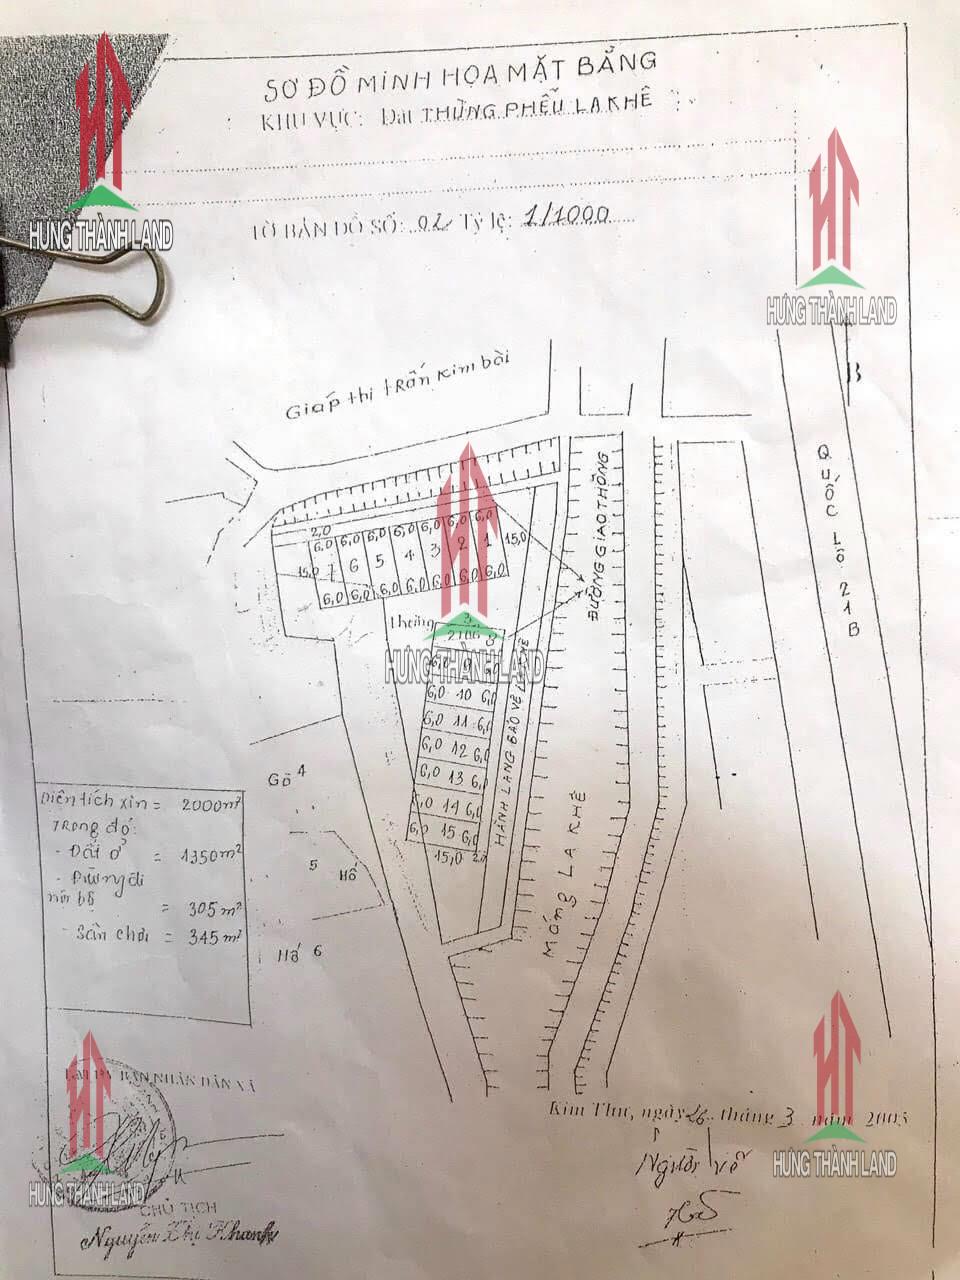 SƠ ĐỒ MINH HỌA MẶT BẰNG
KHU VỰC: Đất THÙNG PHỄU LA KHÊ
TỜ BẢN ĐỒ SỐ: 02 Tỷ lệ: 1/1000
HƯNG THÀNH LAND
HƯNG THÀNH LAND
B
Giáp thị trấn Kim bài
QUỐC LỘ 21B
ĐƯỜNG GIAO THÔNG
2,0
6,0 6,0 6,0 6,0 6,0 6,0 6,0
15,0 7 6 5 4 3 2 1 15,0
6,0 6,0 6,0 6,0 6,0 6,0 6,0
8
HƯNG THÀNH LAND
6,0 9
6,0 10 6,0
6,0 11 6,0
6,0 12 6,0
6,0 13 6,0
6,0 14 6,0
6,0 15 6,0
15,0
HÀNH LANG BẢO VỆ
MÓNG LA KHÊ
Gô 4
5 Hố
Hố 6
Diện tích xin = 2000m²
Trong đó:
- Đất ở = 1350m²
- Đường đi
nội bộ = 305m²
- Sân chơi = 345m²
T/M ỦY BAN NHÂN DÂN XÃ
CHỦ TỊCH
Nguyễn Thị Khanh
HƯNG THÀNH LAND
Kim Thư, ngày 26 tháng 3 năm 2003
Người vẽ
HƯNG THÀNH LAND